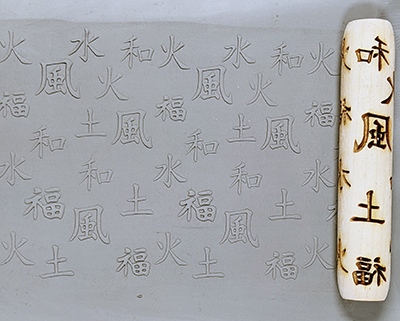 火 水 和 火 水 和 火
風 火 風 火
福 福 福
土 風 土 風
和 和
水 和 水 和 水
福 土 福 土
風 風
火 火 火
土 福 土 福
和
火
風
土
福